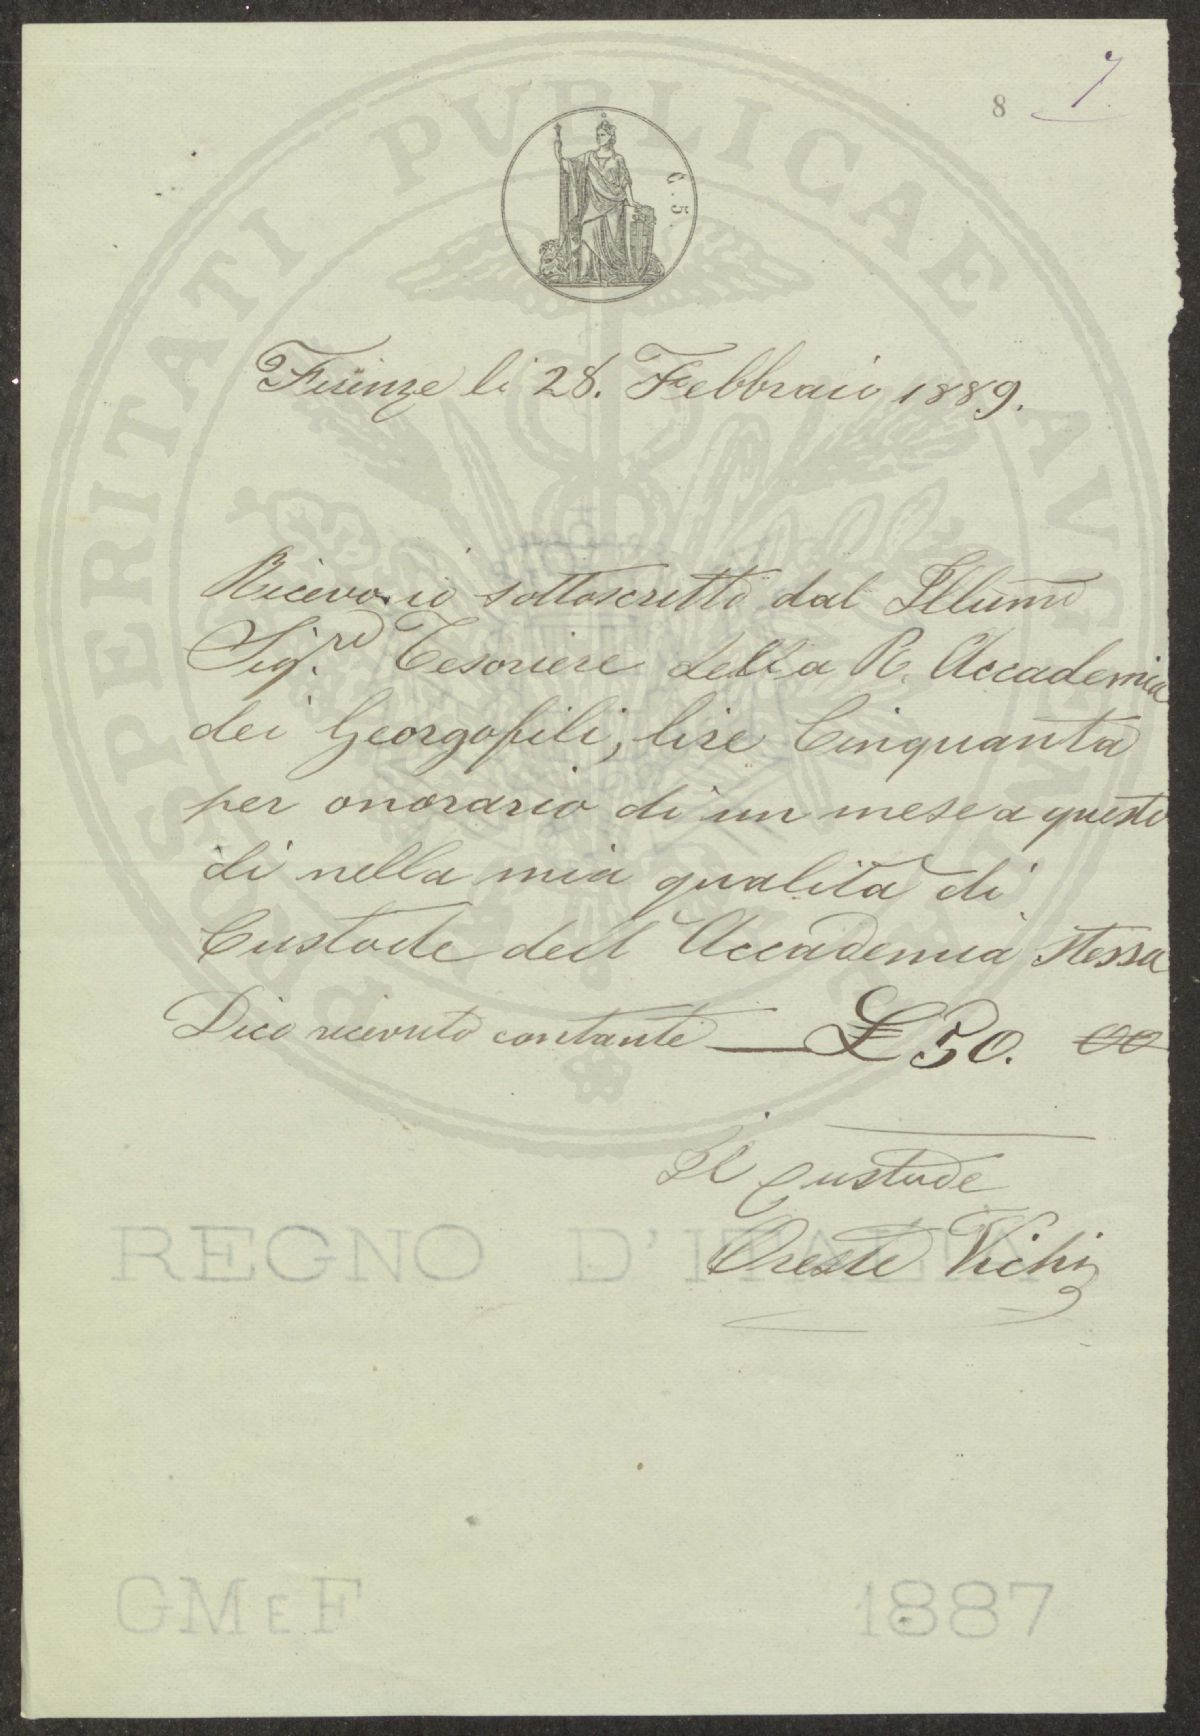 8 7
C. 5
PROSPERITATI PVBLICAE AVGENDAE
Firenze li 28. Febbraio 1889.
Ricevo io sottoscritto dal Illumo
Sigre Tesoriere della R. Accademia
dei Georgofili, lire Cinquanta
per onorario di un mese a questo
dì nella mia qualità di
Custode dell'Accademia stessa
Dico ricevuto contante — £ 50. 00
Il Custode
Oreste Vichi
REGNO D'ITALIA
GM E F 1887